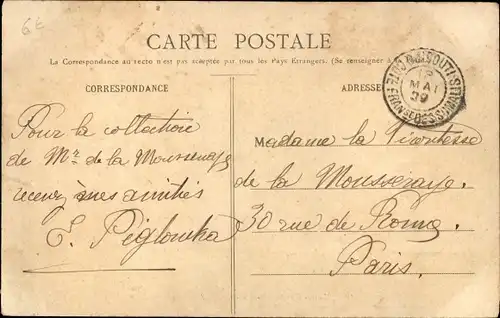 6€
CARTE POSTALE
La Correspondance au recto n'est pas acceptée par tous les Pays Étrangers. (Se renseigner à
CORRESPONDANCE
ADRESSE
DJIBOUTI
MAI
09
Pour la collection
de Mr de la Moussenaye
recevez mes amitiés
Madame la Vicomtesse
de la Moussenaye.
30 rue de Rome
Paris.